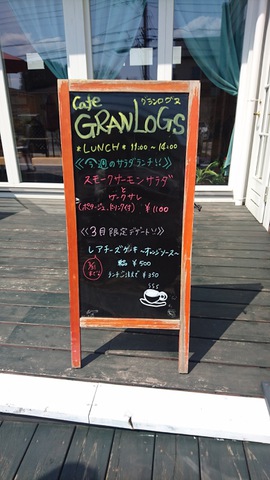 Cafe グランログス
GRANLOGS
*LUNCH* 11:00～14:00
《今週のサラダランチ!!》
スモークサーモンサラダ
と
ケークサレ
(ポタージュ、ドリンク付) ¥1100
《3月限定デザート!!》
レアチーズケーキ～オレンジソース～
単品 ¥500
ランチご注文で ¥350
3/31
まで